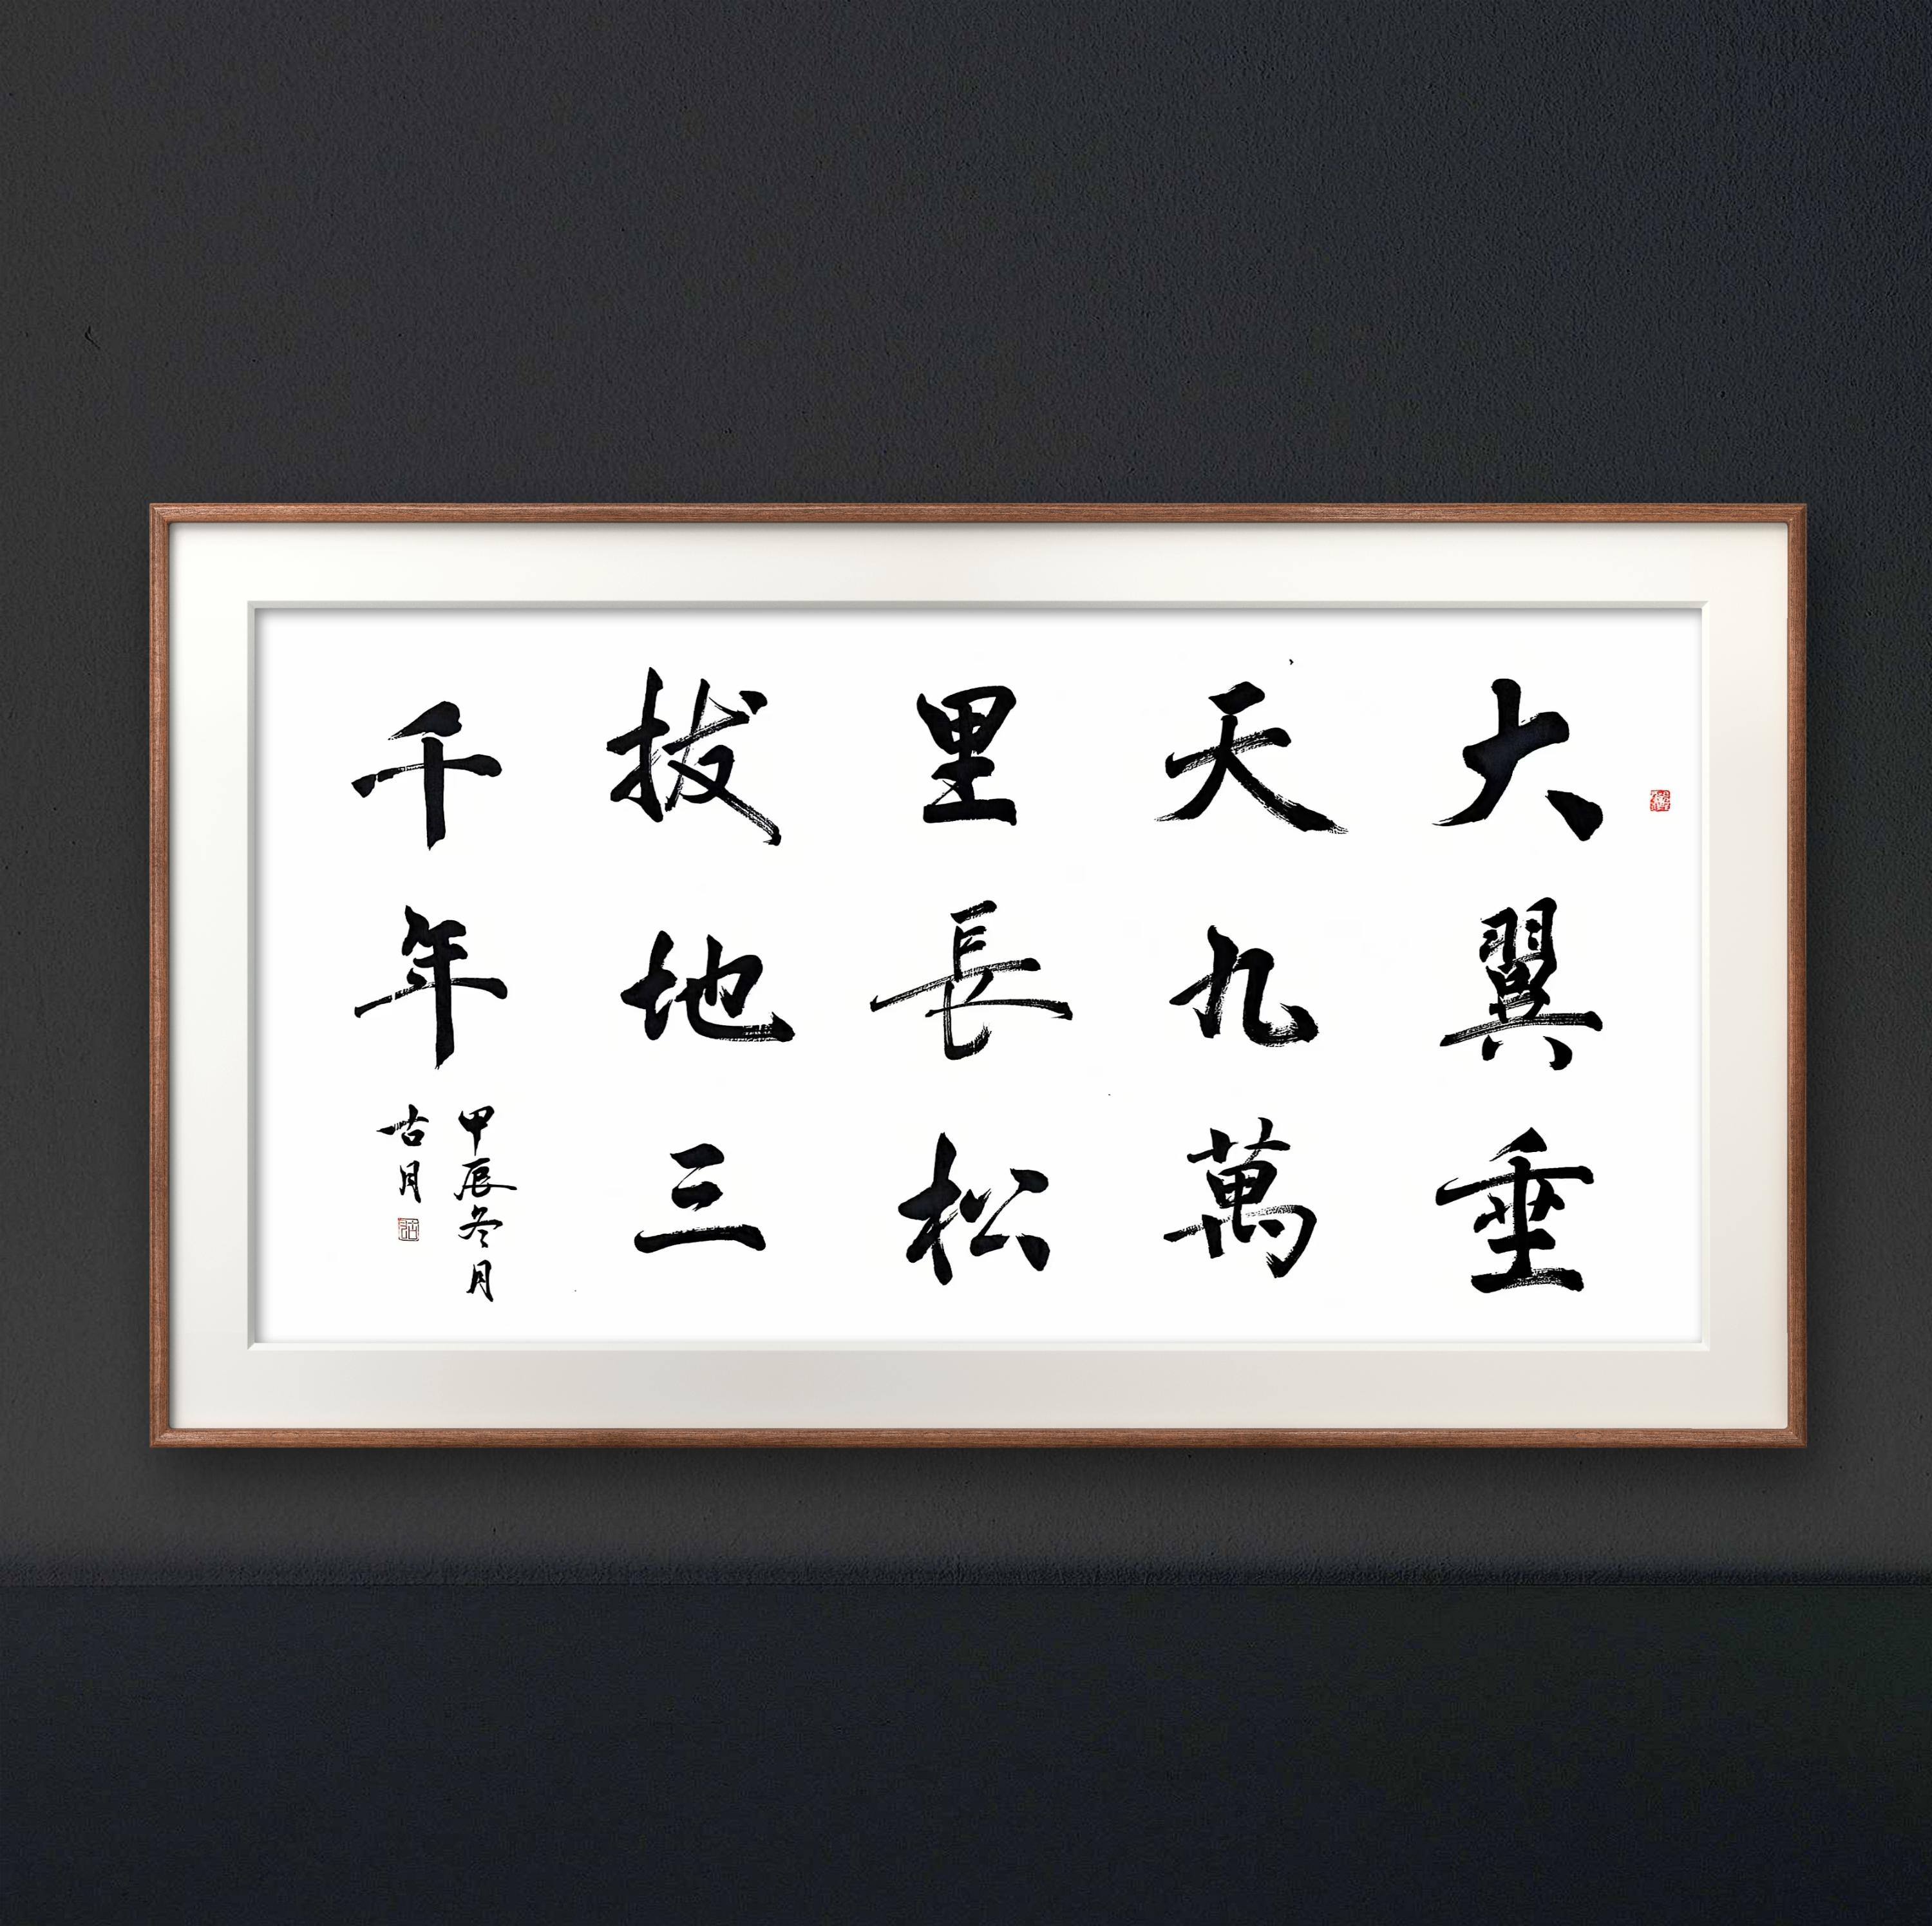 大翼垂
天九萬
里長松
拔地三
千年
甲辰冬月
古月